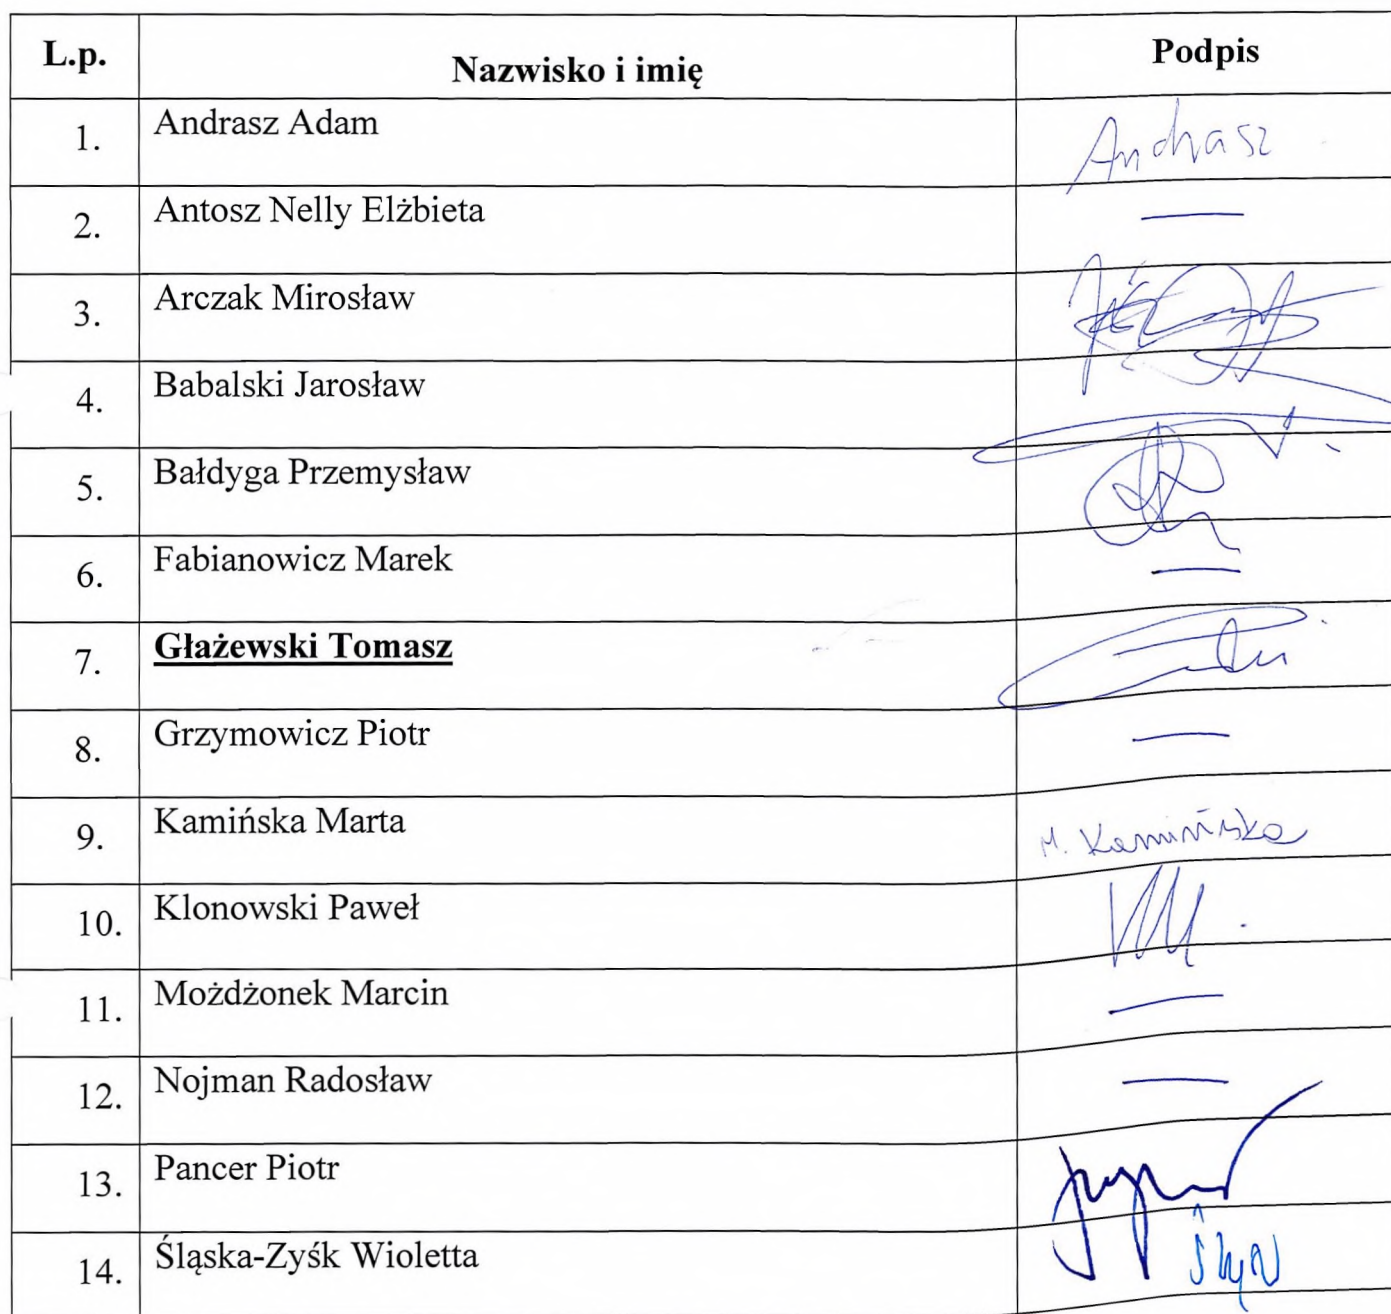 L.p. Nazwisko i imię Podpis
1. Andrasz Adam Andrasz
2. Antosz Nelly Elżbieta —
3. Arczak Mirosław
4. Babalski Jarosław
5. Bałdyga Przemysław
6. Fabianowicz Marek —
7. Głażewski Tomasz
8. Grzymowicz Piotr —
9. Kamińska Marta M. Kamińska
10. Klonowski Paweł
11. Możdżonek Marcin —
12. Nojman Radosław —
13. Pancer Piotr
14. Śląska-Zyśk Wioletta